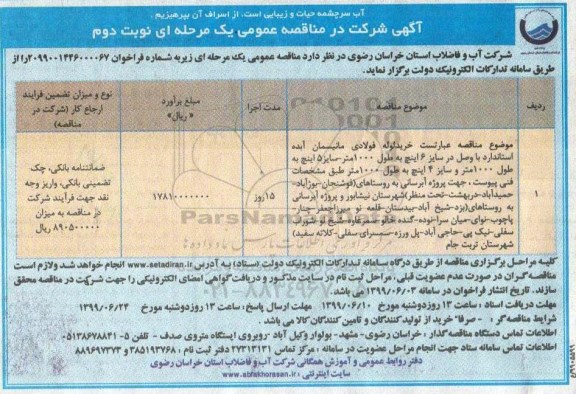 آب سرچشمه حیات و زیبایی است، از اسراف آن بپرهیزیم.
آگهی شرکت در مناقصه عمومی یک مرحله ای نوبت دوم
شرکت آب و فاضلاب استان خراسان رضوی در نظر دارد مناقصه عمومی یک مرحله ای زیر به شماره فراخوان ۲۰۹۹۰۰۱۴۴۶۰۰۰۰۶۷ را از
طریق سامانه تدارکات الکترونیک دولت برگزار نماید.
ردیف
موضوع مناقصه
مدت اجرا
مبلغ برآورد
« ریال»
نوع و میزان تضمین فرایند
ارجاع کار (شرکت در
مناقصه)
۱
موضوع مناقصه عبارتست خرید لوله فولادی مانیسمان آبده
استاندارد با وصل در سایز ۶ اینچ به طول ۱۰۰۰متر-سایز۵ اینچ به
طول ۱۰۰۰متر و سایز ۴ اینچ به طول ۱۰۰۰متر طبق مشخصات
فنی پیوست ، جهت پروژه آبرسانی به روستاهای(فوشنجان-بوژآباد-
حمیدآباد-دربهشت-تحت منظر)شهرستان نیشابور و پروژه آبرسانی
به روستاهای(یزد-شیخ آباد-بیدستان-قلعه نو میراجمل-چنار-
پاچوب-نوای-میان سرا-نوده-گنده خالو-سماروه-شیخ
سفلی-نیک پی-حاجی آباد-پل ورزه-سبسرای-سفلی-کلاته سفید)
شهرستان تربت جام
۱۵روز
۱۷۸۱۰۰۰۰۰۰۰
ضمانتنامه بانکی، چک
تضمینی بانکی، واریز وجه
نقد جهت فرآیند شرکت
در مناقصه به میزان
۸۹۰۵۰۰۰۰۰ ریال
ParsNamadData
کلیه مراحل برگزاری مناقصه از طریق درگاه سامانه تدارکات الکترونیک دولت (ستاد) به آدرس www.setadiran.ir انجام خواهد شد ولازم است
مناقصه گران در صورت عدم عضویت قبلی، مراحل ثبت نام در سایت مذکور و دریافت گواهی امضای الکترونیکی را جهت شرکت در مناقصه محقق
سازند. تاریخ انتشار فراخوان در سامانه ۱۳۹۹/۰۶/۰۳ می باشد.
مهلت دریافت اسناد ، ساعت ۱۳ روزدوشنبه مورخ ۱۳۹۹/۰۶/۱۰ مهلت ارسال پاسخ، ساعت ۱۳ روزدوشنبه مورخ ۱۳۹۹/۰۶/۲۴
شرایط مناقصه گر ؛ - صرفا" خرید از تولید کنندگان و تامین کنندگان کالا می باشد.
اطلاعات تماس دستگاه مناقصه گذار ، خراسان رضوی- مشهد- بولوار وکیل آباد -روبروی ایستگاه متروی صدف - تلفن ۵- ۰۵۱۳۸۶۷۸۸۲۱
اطلاعات تماس سامانه ستاد جهت انجام مراحل عضویت در سامانه ، مرکز تماس ۲۷۳۱۳۱۳۱ دفتر ثبت نام ، ۳۸۵۱۹۳۷۶۸ و ۸۸۹۶۹۷۳۷
دفتر روابط عمومی و آموزش همگانی شرکت آب و فاضلاب استان خراسان رضوی
سایت اینترنتی ، www.abfakhorasan.ir